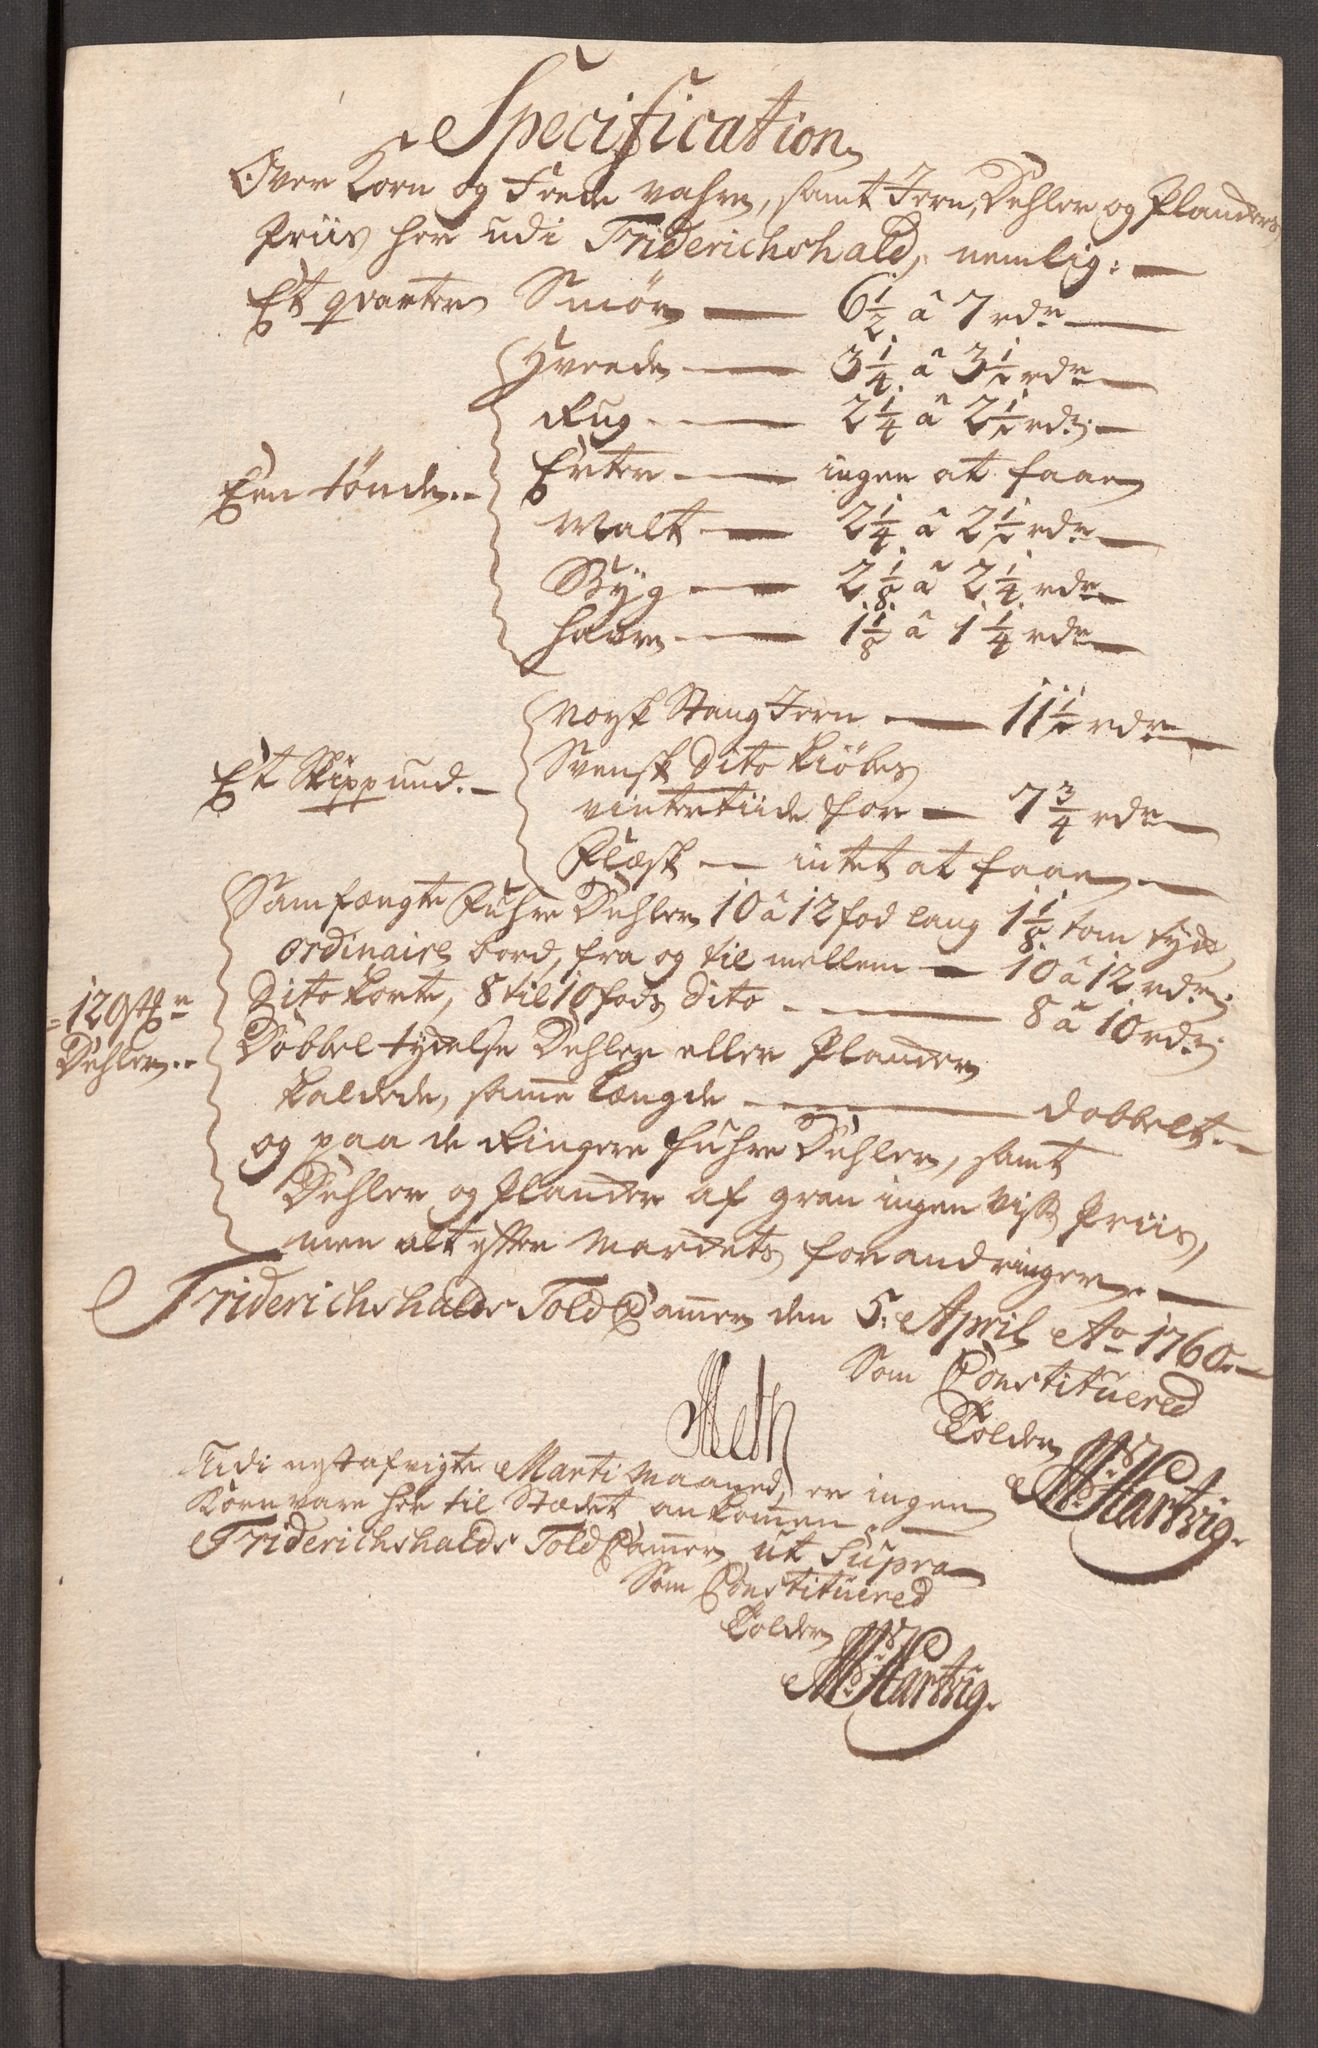 Specification
Over Korn og Fede vahre, samt Jern, Dehler og Planckers
Priis her udi Friderichshald, nemlig:
Et qvarteer Smør — 6 1/2 â 7 rdr
Hveede — 3 1/4 â 3 1/2 rdr
Rug — 2 1/4 â 2 1/2 rdr
Een tønde Erter — ingen at faae
Malt — 2 1/4 â 2 1/2 rdr
Byg — 2 1/8 â 2 1/4 rdr
Haure — 1 1/8 â 1 1/4 rdr
Norsk Stang Jern — 11 1/2 rdr
Et Skippund Svensk Dito kiøbes
vintertiide for — 7 3/4 rdr
Flæsk — intet at faae
Samfængte Fuhre Dehler 10 â 12 fod lang 1 1/8 tom tyde
ordinaire bord, fra og til mellem — 10 â 12 rdr
120 Dito korte, 8 til 10 fods Dito — 8 â 10 rdr
Dehler Dobbel tydelse Dehler eller Plancker
kaldede, samme Længde — dobbelt
og paa de Ringere fuhre Dehler, samt
Dehler og Plancker af gran ingen viss Priis,
men alt efter Marckets forandringer.
Friderichshalds Told Cammer den 5. April Ao 1760
Som Constituered
Tolder
M: Hartvig.
Udi nestafvigte Marti Maaned, er ingen
Kornvare her til Stædet ankommen.
Friderichshalds Told Cammer ut supra
Som Constituered
Tolder
M: Hartvig.